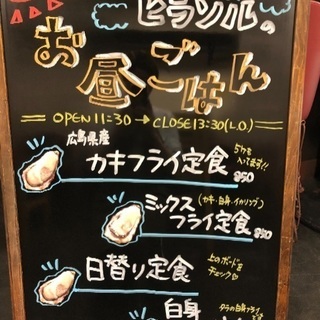 ヒラソルの
お昼ごはん
OPEN 11:30 → CLOSE 13:30(L.O.)
広島県産
カキフライ定食
5ケも入ってます!! 850
ミックス (カキ・白身・イカリング)
フライ定食
日替り定食
上のボードをチェック
白身
タラの白身フライ